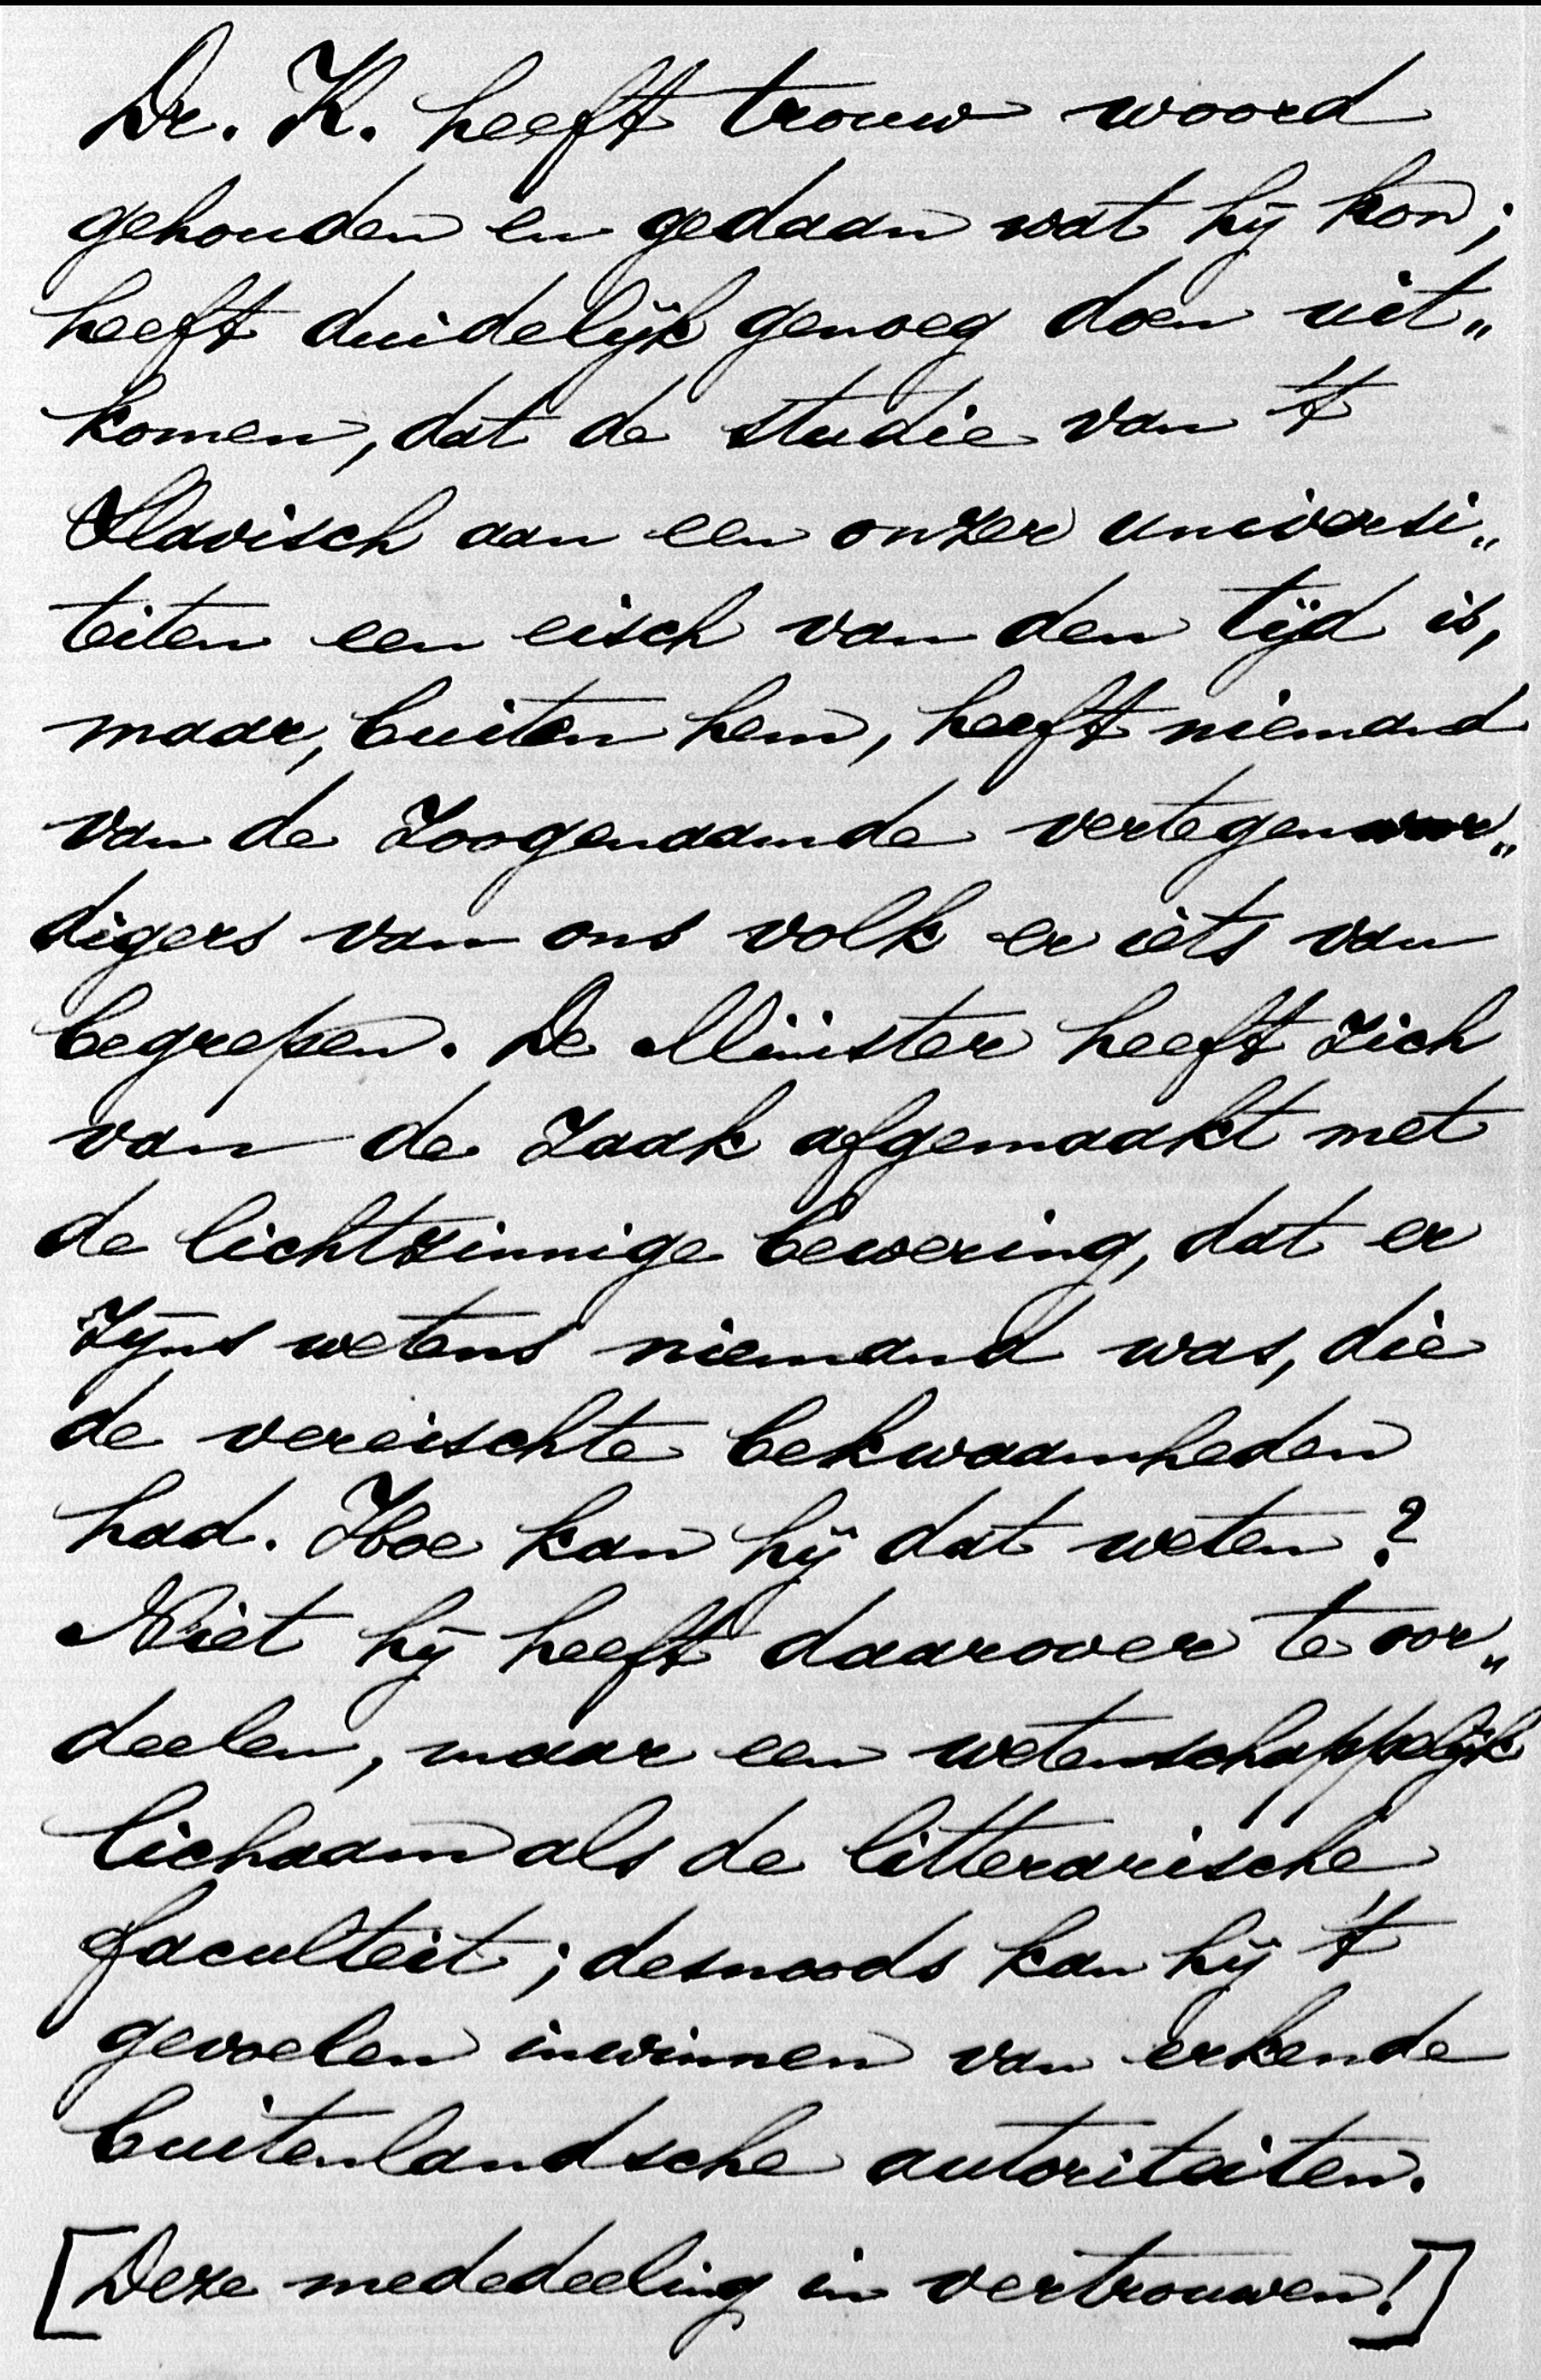 Dr. K. heeft trouw woord
gehouden en gedaan wat hij kon;
heeft duidelijk genoeg doen uit„
komen, dat de studie van 't
Slavisch aan een onzer universi„
teiten een eisch van den tijd is,
maar, buiten hem, heeft niemand
van de zoogenaamde vertegenwoor„
digers van ons volk er iets van
begrepen. De Minister heeft zich
van de zaak afgemaakt met
de lichtzinnige bewering, dat er
zijns wetens niemand was, die
de vereischte bekwaamheden
had. Hoe kan hij dat weten?
Niet hij heeft daarover te oor„
deelen, maar een wetenschappelijk
lichaam als de litterarische
faculteit; desnoods kan hij 't
gevoelen inwinnen van erkende
buitenlandsche autoriteiten.
[Deze mededeeling in vertrouwen!]